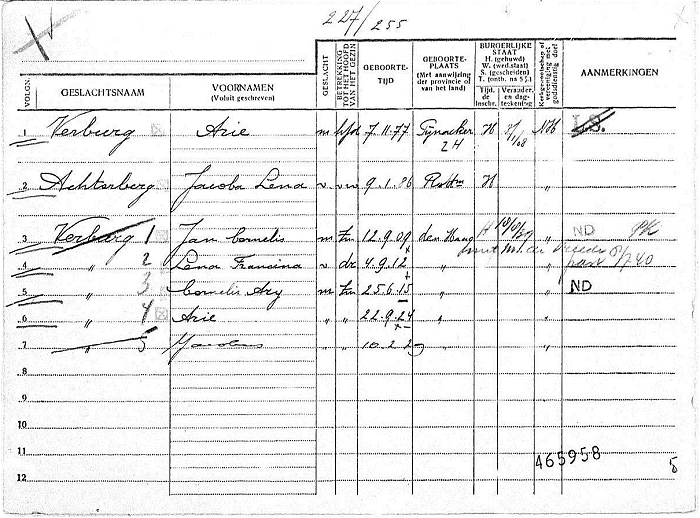 227/255
VOLGN.
GESLACHTSNAAM
VOORNAMEN
(Voluit geschreven)
GESLACHT
BETREKKING TOT HET HOOFD VAN HET GEZIN
GEBOORTE-
TIJD
GEBOORTE-
PLAATS
(Met aanwijzing
der provincie of
van het land)
BURGERLIJKE
STAAT
H. (gehuwd)
W. (wed.staat)
S. (gescheiden)
T. (ontb. na 5 j.)
Tijd. de Inschr.
Verander. en dag-teekening
Kerkgenootschap of vereeniging met godsdienstig doel
AANMERKINGEN
1 Verburg Arie m hfd 7.11.77 Pijnacker H NH L.S.
ZH
2 Achterberg Jacoba Lena v vrw 9.1.86 Rottm H "
3 Verburg 1 Jan Cornelis m zn 12.9.09 den Haag H " ND PK
4 " 2 Lena Francina v dr 4.9.12 " "
5 " 3 Cornelis Ary m zn 25.6.15 " " ND
6 " 4 Arie " " 22.9.24 " "
7 " 5 " " 10.2.29 " "
8
9
10
11
12
465958